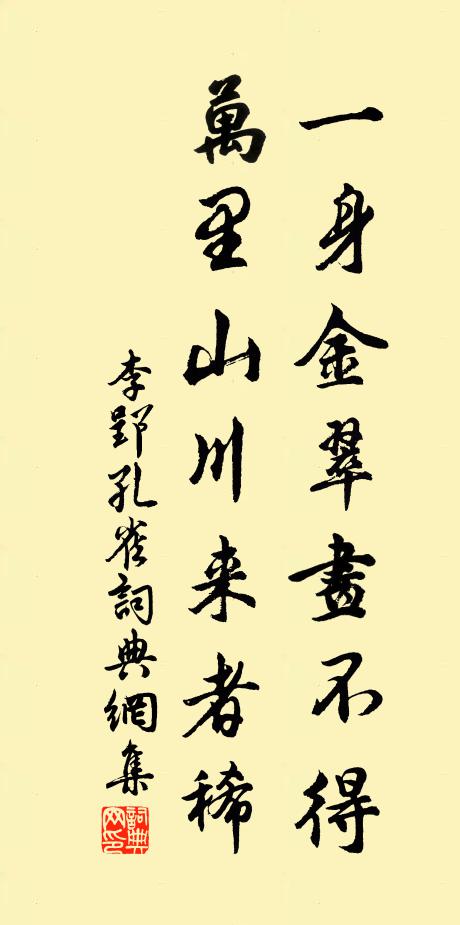 一身金翠畫不得
萬里山川来者稀
李郢孔雀詞典網集
詞典网印